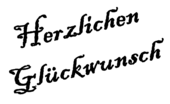 Herzlichen
Glückwunsch